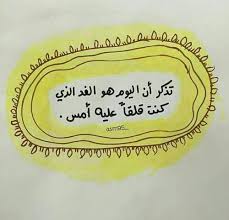 تذكر أن اليوم هو الغد الذي
كنت قلقاً عليه أمس .
asma95_